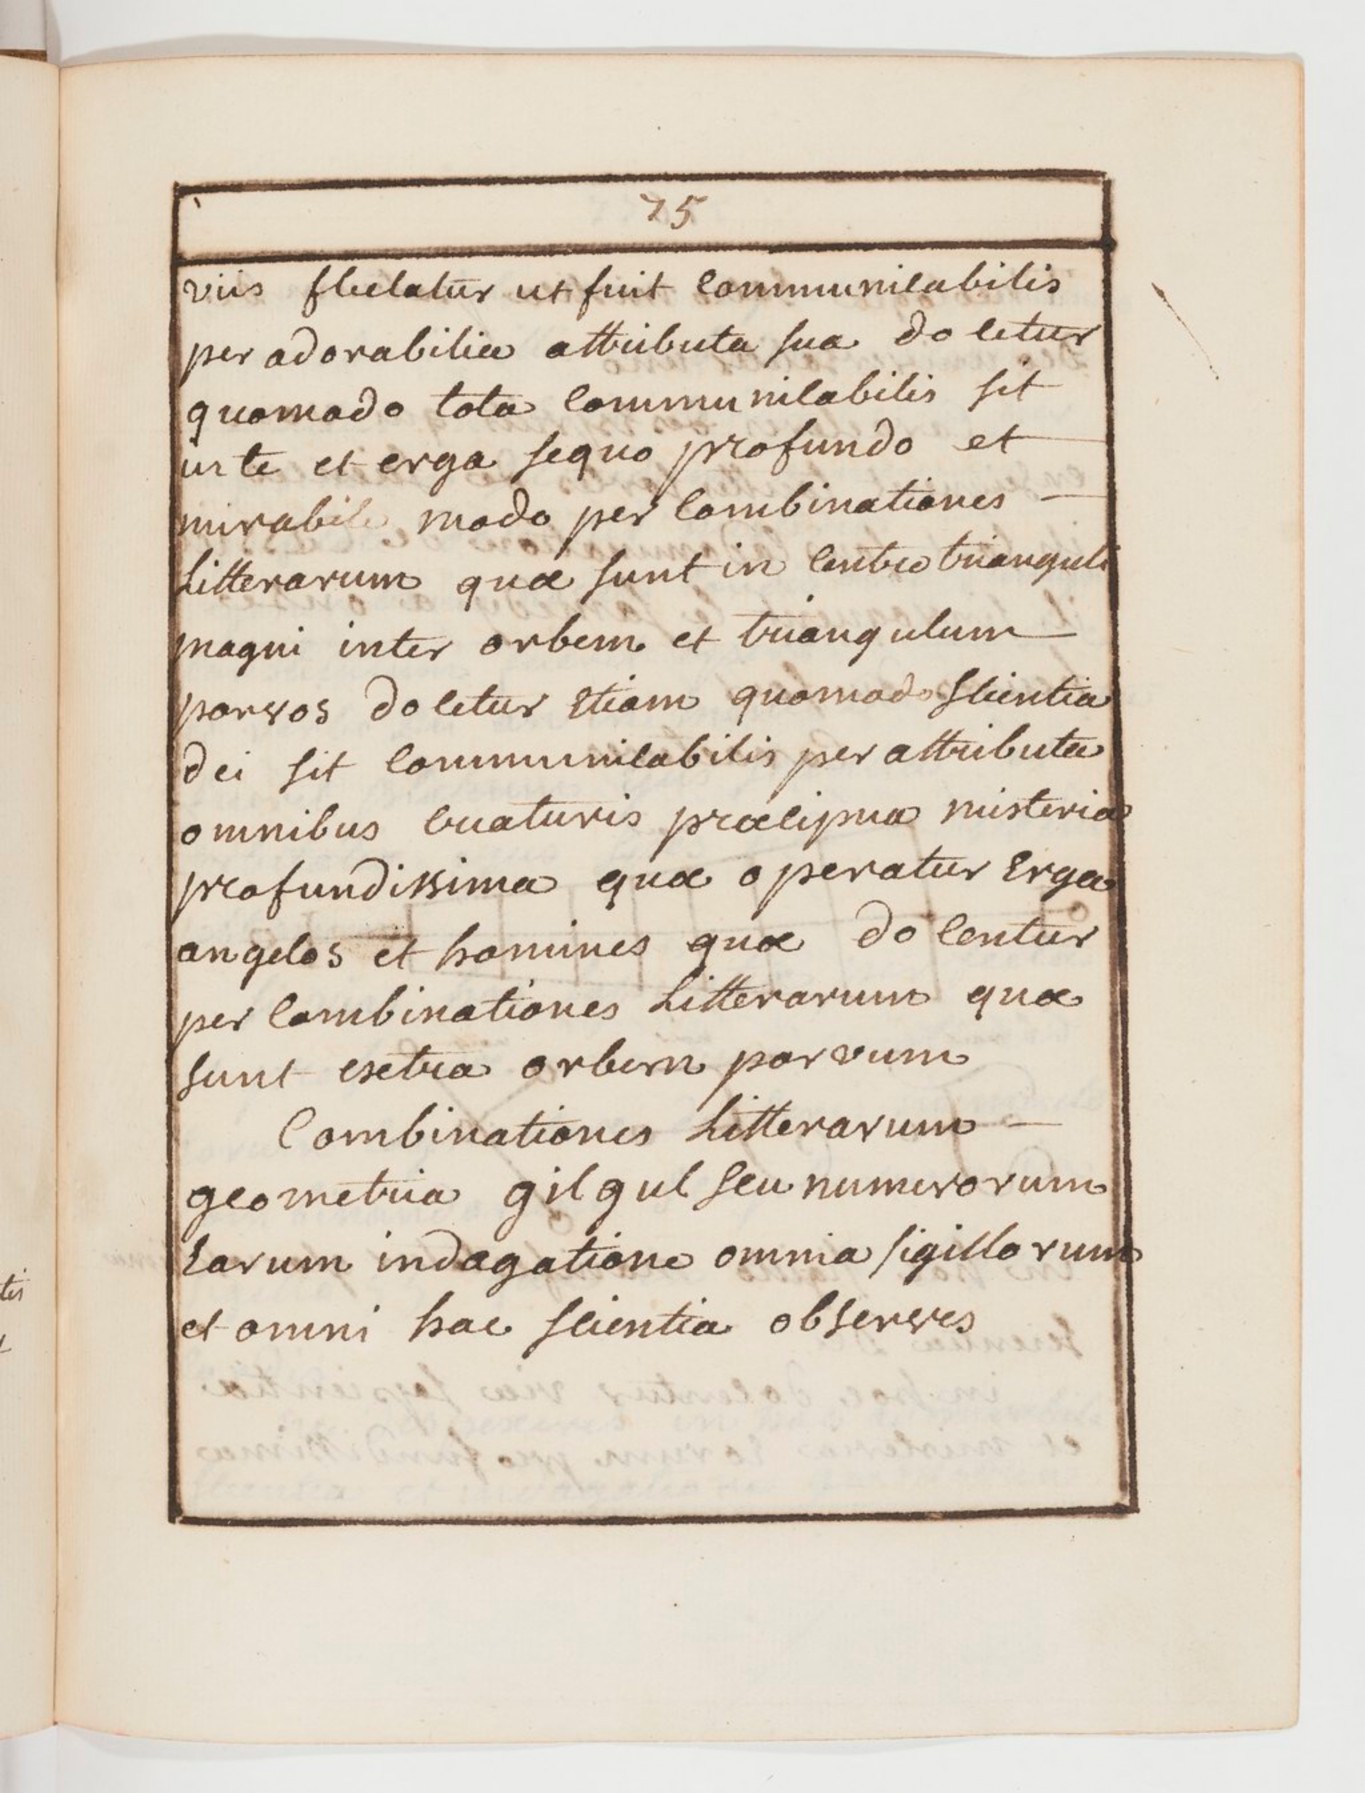 75
viis flectatur ut fuit communicabilis
per adorabilia attributa sua docetur
quomodo tota communicabilis sit
in te et erga se quo profundo et
mirabile modo per combinationes
litterarum quæ sunt in centro trianguli
magni inter orbem et triangulum
parvos docetur etiam quomodo scientia
dei sit communicabilis per attributa
omnibus creaturis præcipua misteria
profundissima quæ operatur erga
angelos et homines quæ docentur
per combinationes litterarum quæ
sunt extra orbem parvum
Combinationes litterarum
geometria gilgul seu numerorum
earum indagatione omnia sigillorum
et omni hac scientia observes